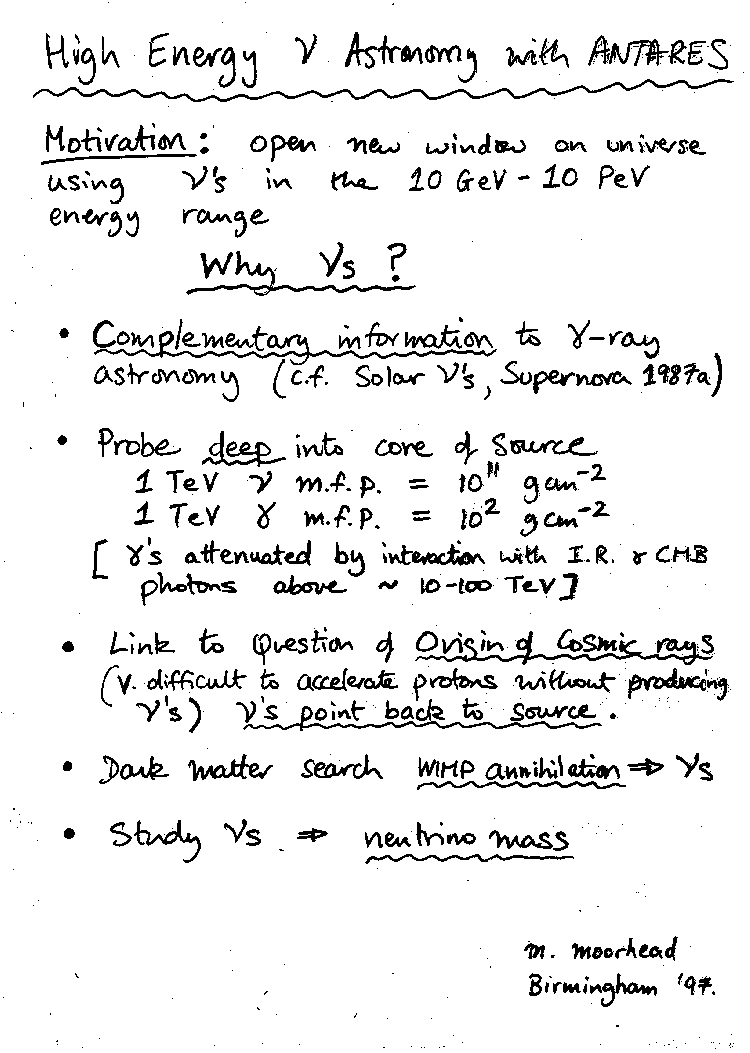 High Energy ν Astronomy with ANTARES
Motivation: open new window on universe
using ν's in the 10 GeV - 10 PeV
energy range
Why νs?
• Complementary information to γ-ray
astronomy (c.f. Solar ν's, Supernova 1987a)
• Probe deep into core of source
1 TeV ν m.f.p. = 10¹¹ gcm⁻²
1 TeV γ m.f.p. = 10² gcm⁻²
[γ's attenuated by interaction with I.R. & CMB
photons above ~ 10-100 TeV]
• Link to Question of Origin of Cosmic rays
(V. difficult to accelerate protons without producing
ν's) ν's point back to source.
• Dark matter search WIMP annihilation ⇒ νs
• Study νs ⇒ neutrino mass
M. Moorhead
Birmingham '97.